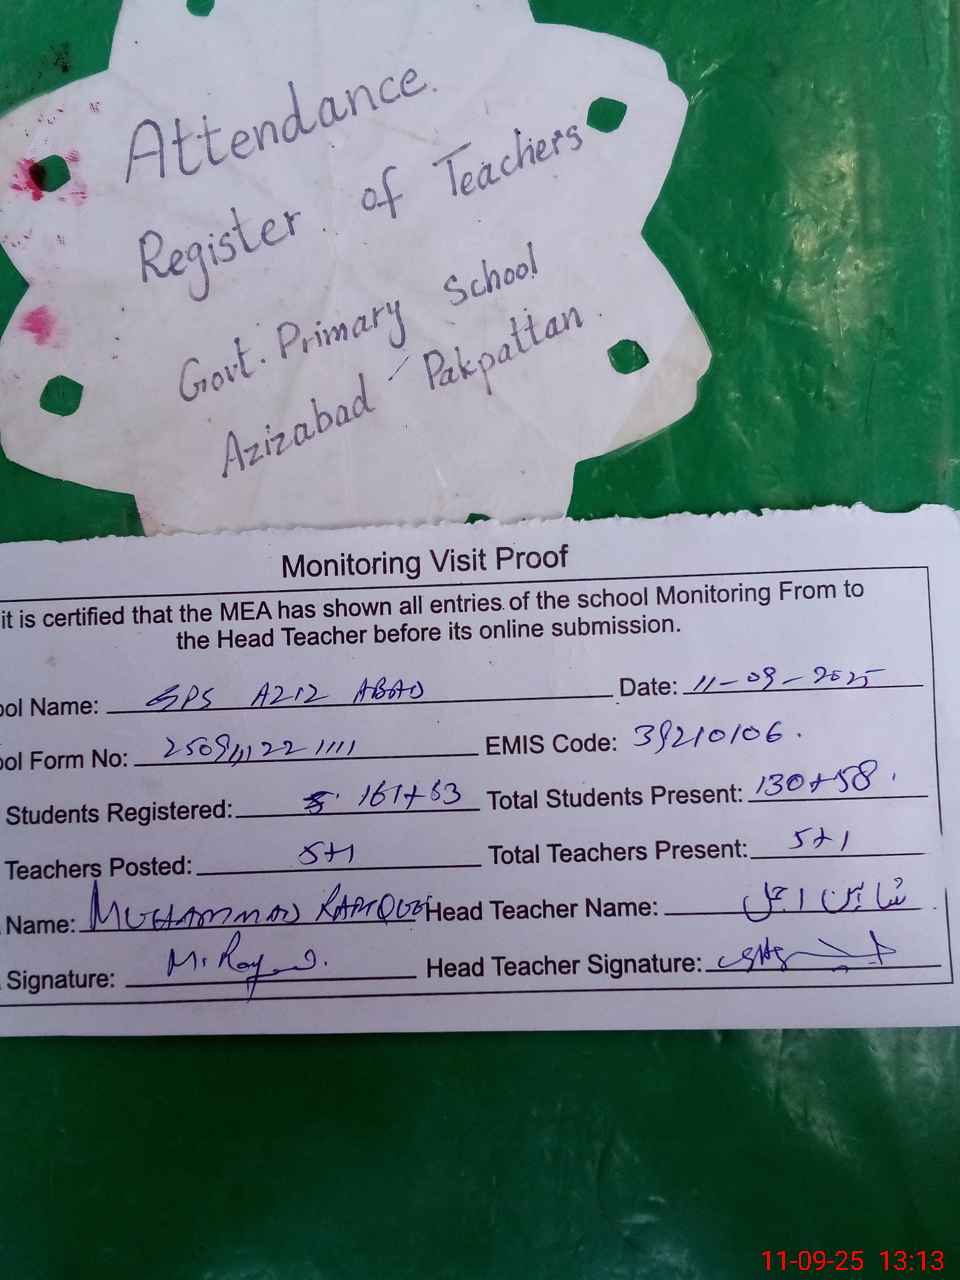 Attendance.
Register of Teachers
Govt. Primary School
Azizabad Pakpattan.
Monitoring Visit Proof
it is certified that the MEA has shown all entries of the school Monitoring From to
the Head Teacher before its online submission.
ool Name: GPS AZIZ ABAD Date: 11-09-2025
ool Form No: EMIS Code: 39210106.
Students Registered: 161+63 Total Students Present: 130+58.
Teachers Posted: 5+1 Total Teachers Present: 5+1
Name: MUHAMMAD Head Teacher Name:
Signature: Head Teacher Signature:
11-09-25 13:13